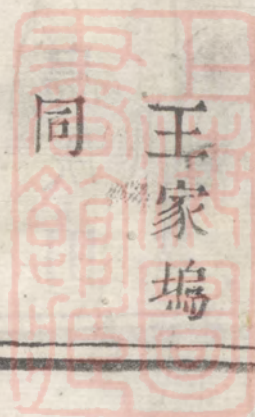 王家塢
同